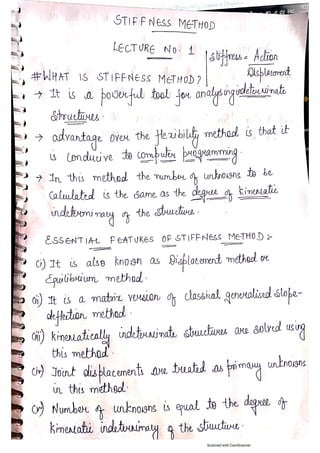 STIFFNESS METHOD
LECTURE NO. 1
Stiffness = Action
Displacement
#WHAT IS STIFFNESS METHOD?
→ It is a powerful tool for analysing indeterminate
structures.
→ advantage over the flexibility method is that it
is conducive to computer programming.
→ In this method the number of unknowns to be
calculated is the same as the degree of kinematic
indeterminary of the structure.
ESSENTIAL FEATURES OF STIFFNESS METHOD :-
(i) It is also known as Displacement method or
Equilibrium method.
(ii) It is a matrix version of classical generalised slope-
deflection method.
(iii) kinematically indeterminate structures are solved using
this method.
(iv) Joint displacements are treated as primary unknowns
in this method.
(v) Number of unknowns is equal to the degree of
kinematic indeterminary of the structure.
Scanned with CamScanner